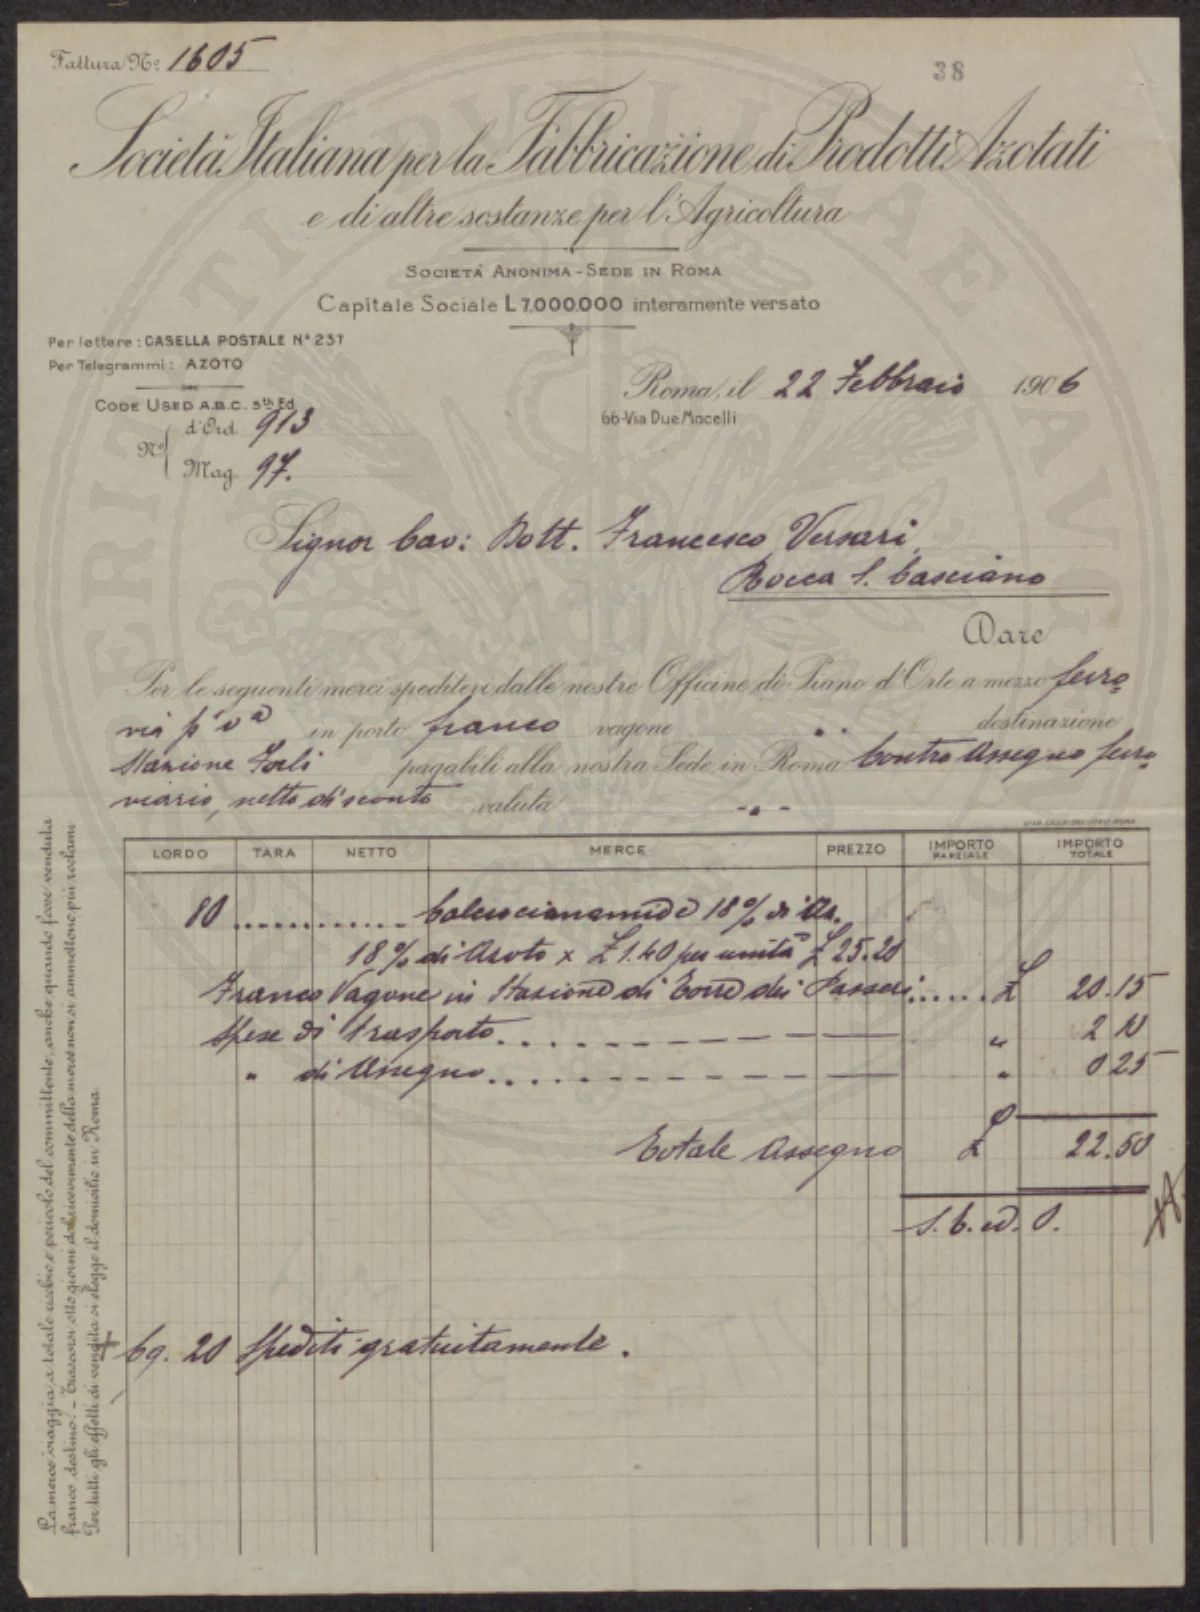 Fattura N.o 1605
38
Società Italiana per la Fabbricazione di Prodotti Azotati
e di altre sostanze per l'Agricoltura
SOCIETÀ ANONIMA - SEDE IN ROMA
Capitale Sociale L 7.000.000 interamente versato
Per lettere: CASELLA POSTALE N° 237
Per Telegrammi: AZOTO
CODE USED A.B.C. 5th Ed
Roma, il 22 Febbraio 1906
66-Via Due Macelli
Ni d'Ord. 913
Mag. 97.
Signor Cav: Dott. Francesco Versari
Rocca S. Casciano
Dare
Per le seguenti merci speditevi dalle nostre Officine di Piano d'Orte a mezzo ferro=
via p. va in porto franco vagone " destinazione
Stazione Forlì pagabili alla nostra Sede in Roma Contro Assegno ferro=
viario, netto di sconto valuta - " -
LORDO TARA NETTO MERCE PREZZO IMPORTO PARZIALE IMPORTO TOTALE
80 ............ Calciocianamide 18% di Az.
18% di Azoto x £ 1.40 per unità £ 25.20
Franco Vagone in Stazione di Torre dei Passeri...... £ 20.15
Spese di trasporto.... " 2 10
" di Assegno.... " 0 25
Totale Assegno £ 22.50
S. E. ed. O.
+ Cg. 20 Spediti gratuitamente.
La merce viaggia a totale rischio e pericolo del committente, anche quando fosse venduta
franco destino. - Trascorsi otto giorni dal ricevimento della merce non si ammettono più reclami
Per tutti gli effetti di vendita si elegge il domicilio in Roma.